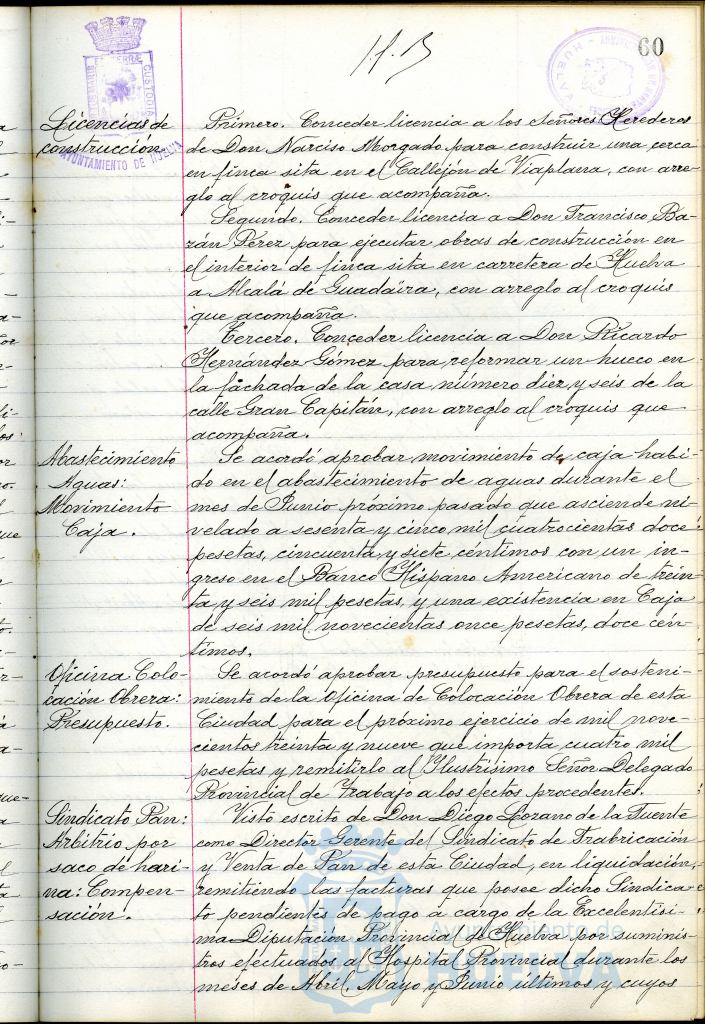 60
Licencias de
construcción.
AYUNTAMIENTO DE HUELVA
Primero. Conceder licencia a los Señores Herederos
de Don Narciso Morgado para construir una cerca
en finca sita en el Callejón de Viaplana, con arre-
glo al croquis que acompaña.
Segundo. Conceder licencia a Don Francisco Ba-
zán Pérez para ejecutar obras de construcción en
el interior de finca sita en carretera de Huelva
a Alcalá de Guadaíra, con arreglo al croquis
que acompaña.
Tercero. Conceder licencia a Don Ricardo
Hernández Gómez para reformar un hueco en
la fachada de la casa número diez y seis de la
calle Gran Capitán, con arreglo al croquis que
acompaña.
Abastecimiento
Aguas:
Movimiento
Caja.
Se acordó aprobar movimiento de caja habi-
do en el abastecimiento de aguas durante el
mes de Junio próximo pasado que asciende ni-
velado a sesenta y cinco mil cuatrocientas doce
pesetas, cincuenta y siete céntimos con un in-
greso en el Banco Hispano Americano de trein-
ta y seis mil pesetas, y una existencia en Caja
de seis mil novecientas once pesetas, doce cén-
timos.
Oficina Colo-
cación Obrera:
Presupuesto.
Se acordó aprobar presupuesto para el sosteni-
miento de la Oficina de Colocación Obrera de esta
Ciudad para el próximo ejercicio de mil nove-
cientos treinta y nueve que importa cuatro mil
pesetas y remitirlo al Ilustrísimo Señor Delegado
Provincial de Trabajo a los efectos procedentes.
Sindicato Pan:
Arbitrio por
saco de hari-
na: Compen-
sación.
Visto escrito de Don Diego Lozano de la Fuente
como Director Gerente del Sindicato de Frabricación
y Venta de Pan de esta Ciudad, en liquidación,
remitiendo las facturas que posee dicho Sindica-
to pendientes de pago a cargo de la Excelentísi-
ma Diputación Provincial de Huelva por suminis-
tros efectuados al Hospital Provincial durante los
meses de Abril, Mayo y Junio últimos y cuyos
Ayuntamiento de
HUELVA